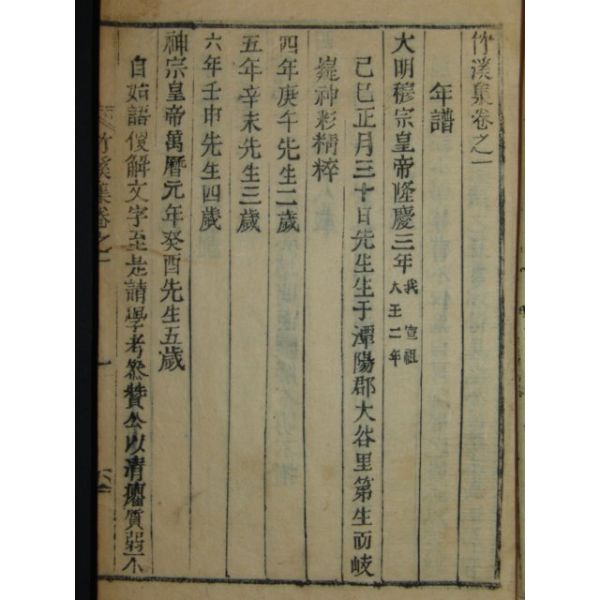 竹溪集卷之一
年譜
大明穆宗皇帝隆慶三年我 宣祖大王二年
己巳正月三十日先生生于潭陽郡大谷里第生而岐
嶷神彩精粹
四年庚午先生二歲
五年辛未先生三歲
六年壬申先生四歲
神宗皇帝萬曆元年癸酉先生五歲
自始語便解文字至是請學考參贊公以清癯質弱不
竹溪集卷之一
一